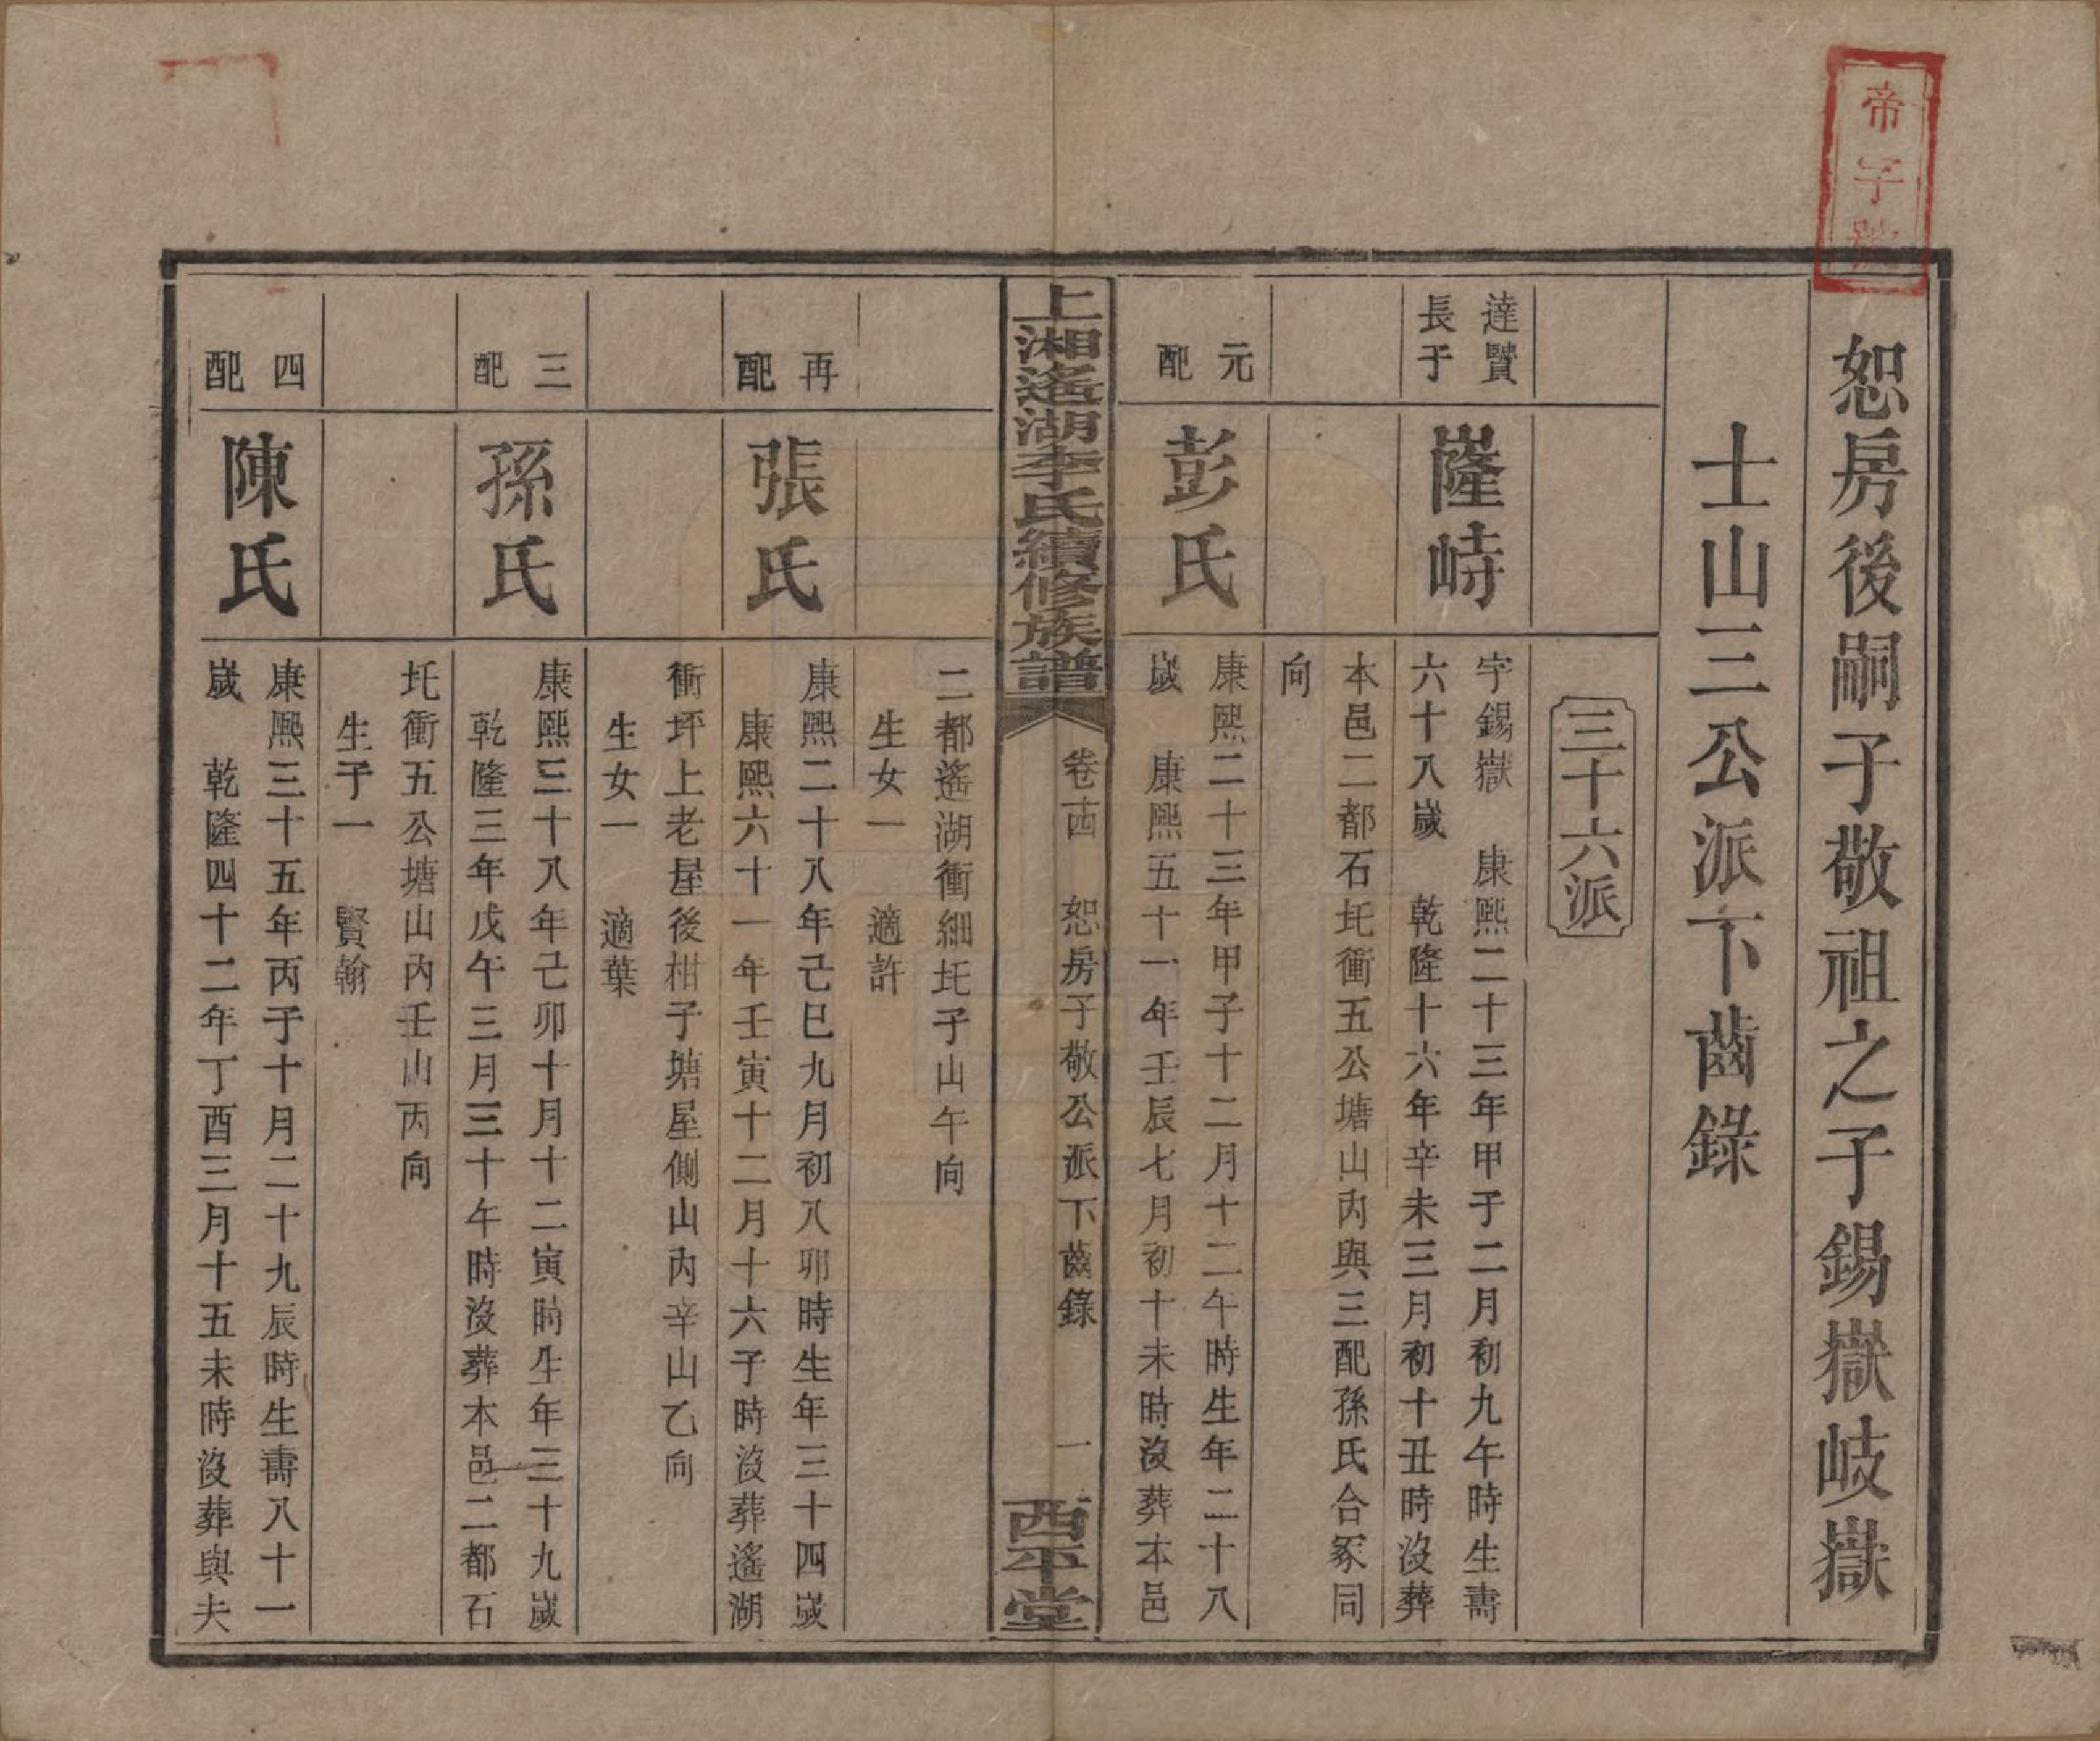 帝子號
恕房後嗣子敬祖之子錫嶽岐嶽
士山三公派下齒錄
三十六派
達賢
長子
嶐峙
字錫嶽　康熙二十三年甲子二月初九午時生壽
六十八歲　乾隆十六年辛未三月初十丑時沒葬
本邑二都石圫衝五公塘山內與三配孫氏合冢同
向
元配
彭氏
康熙二十三年甲子十二月十二午時生年二十八
歲　康熙五十一年壬辰七月初十未時沒葬本邑
上湘遙湖李氏續修族譜
卷十四　恕房子敬公派下齒錄　一
西平堂
二都遙湖衝細圫子山午向
生女一　適許
再配
張氏
康熙二十八年己巳九月初八卯時生年三十四歲
康熙六十一年壬寅十二月十六子時沒葬遙湖
衝坪上老屋後柑子塘屋側山內辛山乙向
生女一　適葉
三配
孫氏
康熙三十八年己卯十月十二寅時生年三十九歲
乾隆三年戊午三月三十午時沒葬本邑二都石
圫衝五公塘山內壬山丙向
生子一　賢翰
四配
陳氏
康熙三十五年丙子十月二十九辰時生壽八十一
歲　乾隆四十二年丁酉三月十五未時沒葬與夫